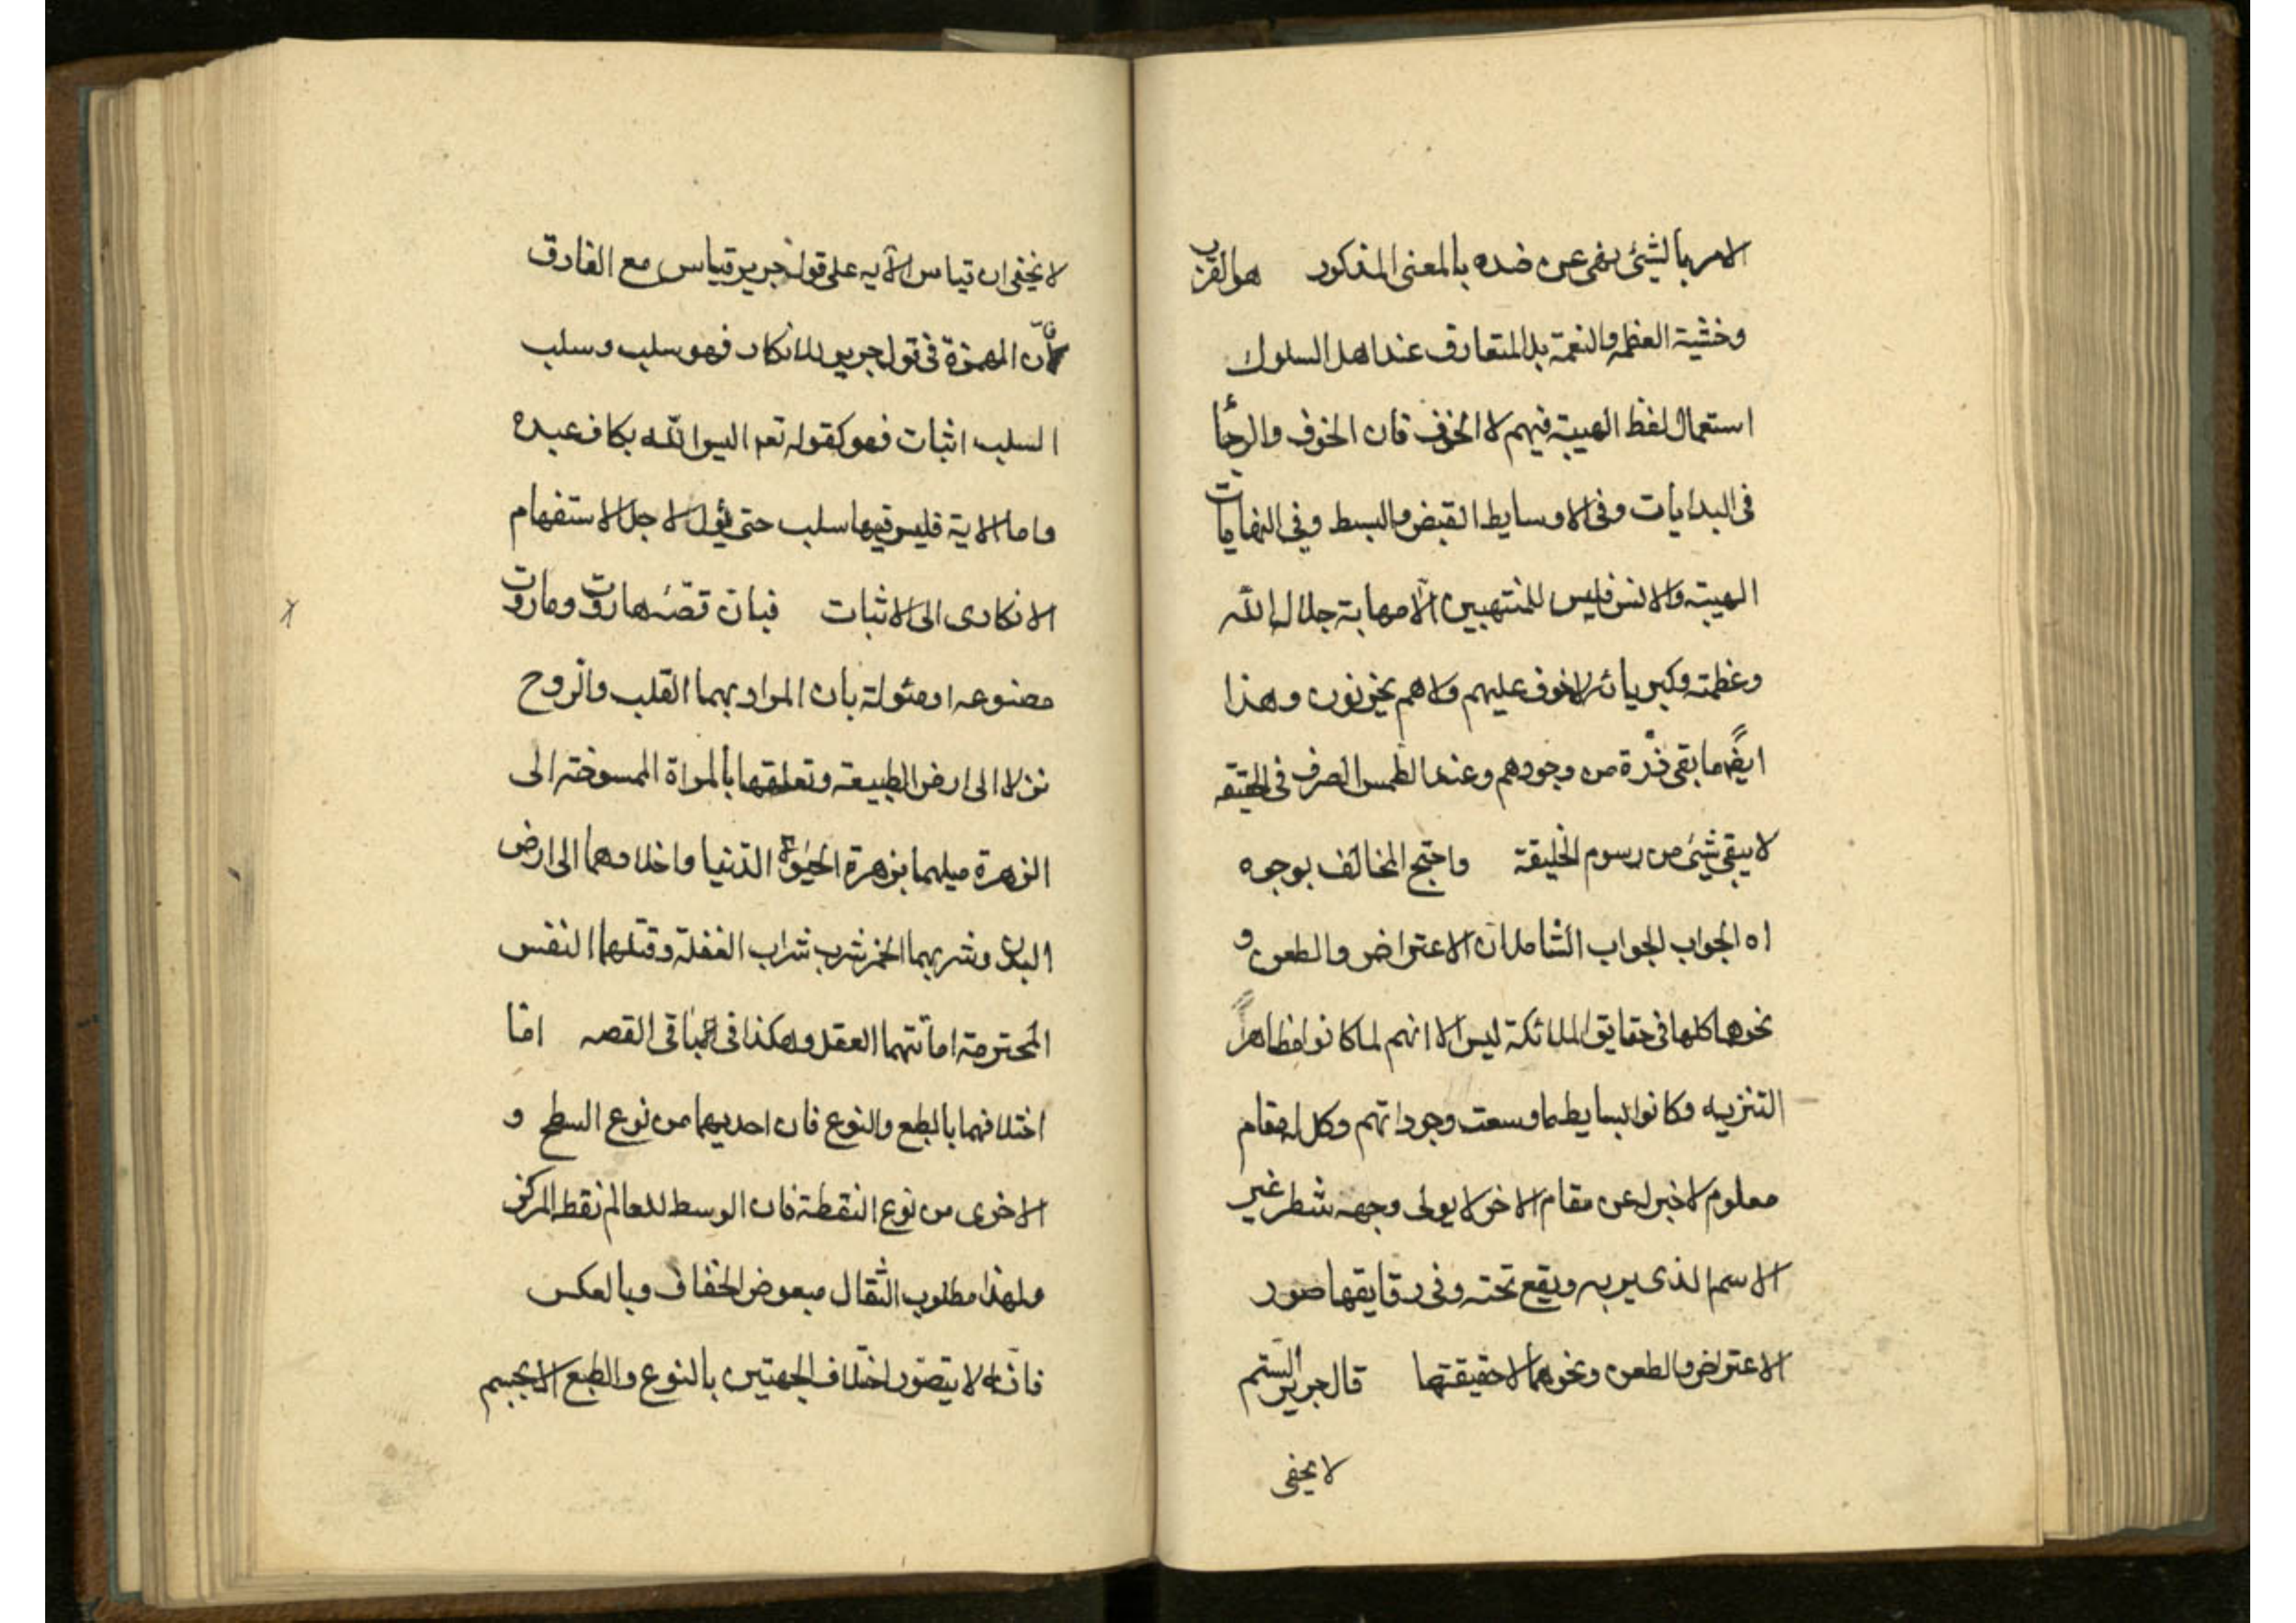 الامر بالشیئ نهی عن ضده بالمعنی المذکور هو القرب
وخشیة العظمه والنعمة بل المتعارف عند اهل السلوك
استعمال لفظ الهیبة فیهم لا الخوف فان الخوف والرجأ
فی البدایات وفی الاوسایط القبض والبسط وفی النهایات
الهیبة والانس فلیس للمنتهیین الا مهابة جلال الله
وعظمته وکبریائه لا خوف علیهم ولا هم یحزنون وهذا
ایضًا ما بقی ذرّة من وجودهم وعند الطمس الصرف فی الحقیقه
لا یبقی شیئ من رسوم الخلیقة واحتج المخالف بوجوه
اه الجواب الجواب الشامل ان الاعتراض والطعن و
نحوها کلها فی حقایق الملائکة لیس الا انهم لما کانوا مظاهرًا
التنزیه وکانوا بسایط ما وسعت وجوداتهم وکل له مقام
معلوم لا خبر له عن مقام الاخر لا یولی وجهه شطر غیر
الاسم الذی یربه ویقع تحته وفی رقایقها صور
الاعتراض والطعن ونحوهما لا حقیقتها قال جریر الستم
لا یخفی
لا یخفی ان قیاس الآیه علی قول جریر قیاس مع الفارق
لأنّ الهمزة فی قول جریر للانکار فهو سلب وسلب
السلب اثبات فهو کقوله تعم الیس الله بکاف عبده
واما الایة فلیس فیها سلب حتی یؤل لاجل الاستفهام
الانکاری الی الاثبات فبان قصّه هاروت وماروت
مصنوعه او مئولة بان المراد بهما القلب والروح
نزلا الی ارض الطبیعة وتعلقهما بالمراة الممسوخة الی
الزهرة میلهما بزهرة الحیوة الدنیا واخلادهما الی ارض
البدن وشربهما الخمر شرب شراب الغفلة وقتلهما النفس
المحترمة اماتتهما العقل وهکذا فی باقی القصه امّا
اختلافهما بالطبع والنوع فان احدیهما من نوع السطح و
الاخری من نوع النقطة فان الوسط للعالم نقطه المرکز
ولهذا مطلوب الثقال مبعوض الخفاف وبالعکس
فانّه لا یتصوّر اختلاف الجهتین بالنوع والطبع الا بجسم